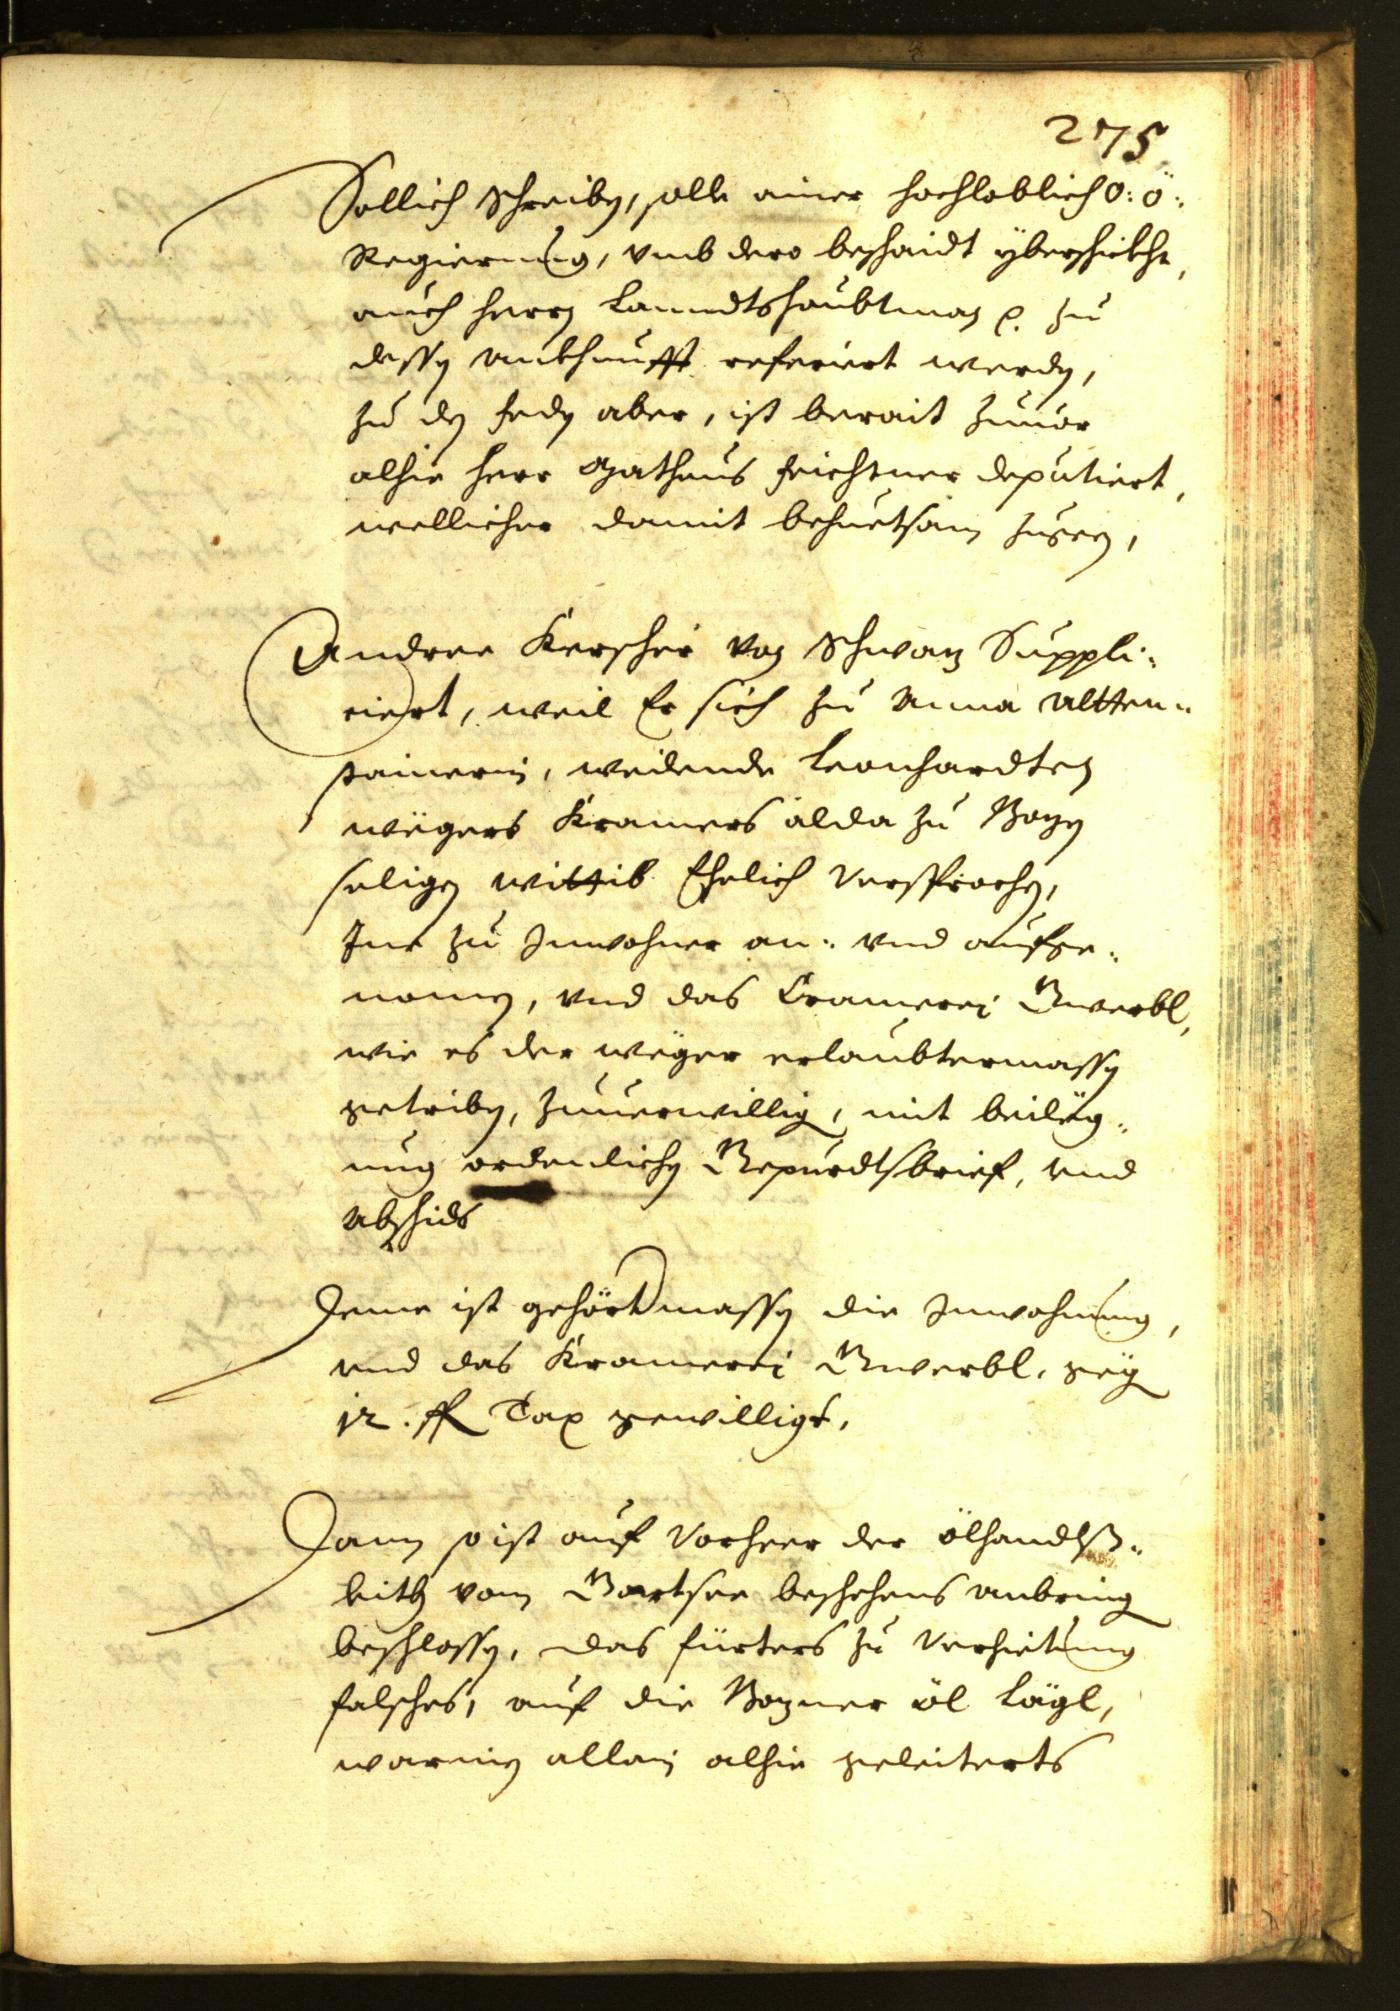 275
Sollich Schreiben, solle ainer hochloblich O: Ö:
Regierung, vmb dero beschaidt yberschickht,
auch herrn Lanndtshaubtman p. zu
dessen ankhunfft referiert werden,
zu den aber, ist berait zuuor
alhie herr Matheus Feichtner deputiert,
wellicher damit behuetsam zugeen,
Andree Kerscher von Schwaz Suppli-
ciert, weil Er sich zu Anna Altten-
stainerin, weilende Leonhardten
Wëgers Kramers alda zu Bozen
seligen wittib Ehelich versprochen,
Ine zu Inwohner an- vnd aufge-
nomen, vnd das Cramerei Gwerbl,
wie es der Wëger erlaubtermassen
getriben, zuuerwilligen, mit beileg-
ung ordenlichen Gepurdtsbrief, vnd
Abschids
Deme ist gehörtermassen die Inwohnung,
vnd das Kramerei Gwerbl, gegen
12 . fl Tax gewilligt,
Dann so ist auf vorheer der ölhandls-
leith vom Gartsee beschehens anbringen
beschlossen, das fürters zu verhietung
falsches, auf die Bozner öl Lägl,
warinen allain alhie geleiterts